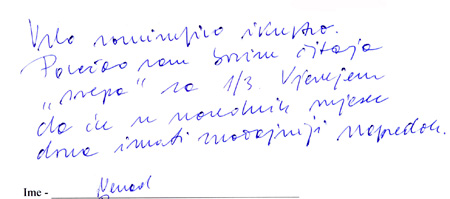 Vrlo zanimljivo iskustvo.
Povećao sam brzinu čitanja
„ za 1/3. Vjerujem
da ću u narednih mjesec
dana imati značajniji napredak.
Ime - Nenad